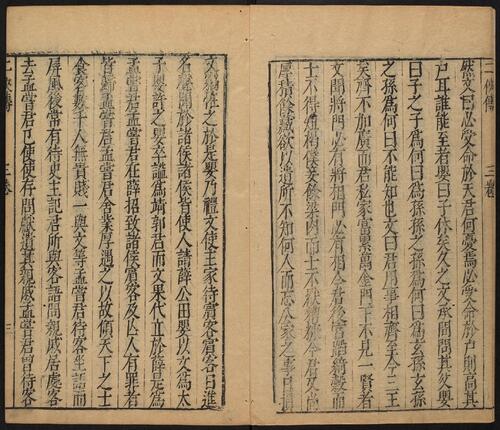 二俠傳 三卷
然文曰必受命於天君何憂焉必受命於戶則高其
戶耳誰能至者嬰曰子休矣久之文承間問其父嬰
曰子之子為何曰為孫孫之孫為何曰為玄孫玄孫
之孫為何曰不能知也文曰君用事相齊至今三王
矣齊不加廣而君私家富累萬金門下不見一賢者
文聞將門必有將相門必有相今君後宮蹈綺縠而
士不得短褐僕妾餘粱肉而士不厭糟糠今君又尚
厚積餘藏欲以遺所不知何人而忘公家之事日損
文竊怪之於是嬰乃禮文使主家待賓客賓客日進
名聲聞於諸侯諸侯皆使人請薛公田嬰以文為太
子嬰許之嬰卒諡為靖郭君而文果代立於薛是為
孟嘗君孟嘗君在薛招致諸侯賓客及亡人有罪者
皆歸孟嘗君孟嘗君舍業厚遇之以故傾天下之士
食客數千人無貴賤一與文等孟嘗君待客坐語而
屏風後常有侍史主記君所與客語問親戚居處客
去孟嘗君已使使存問獻遺其親戚孟嘗君曾待客
二俠傳 三卷 三